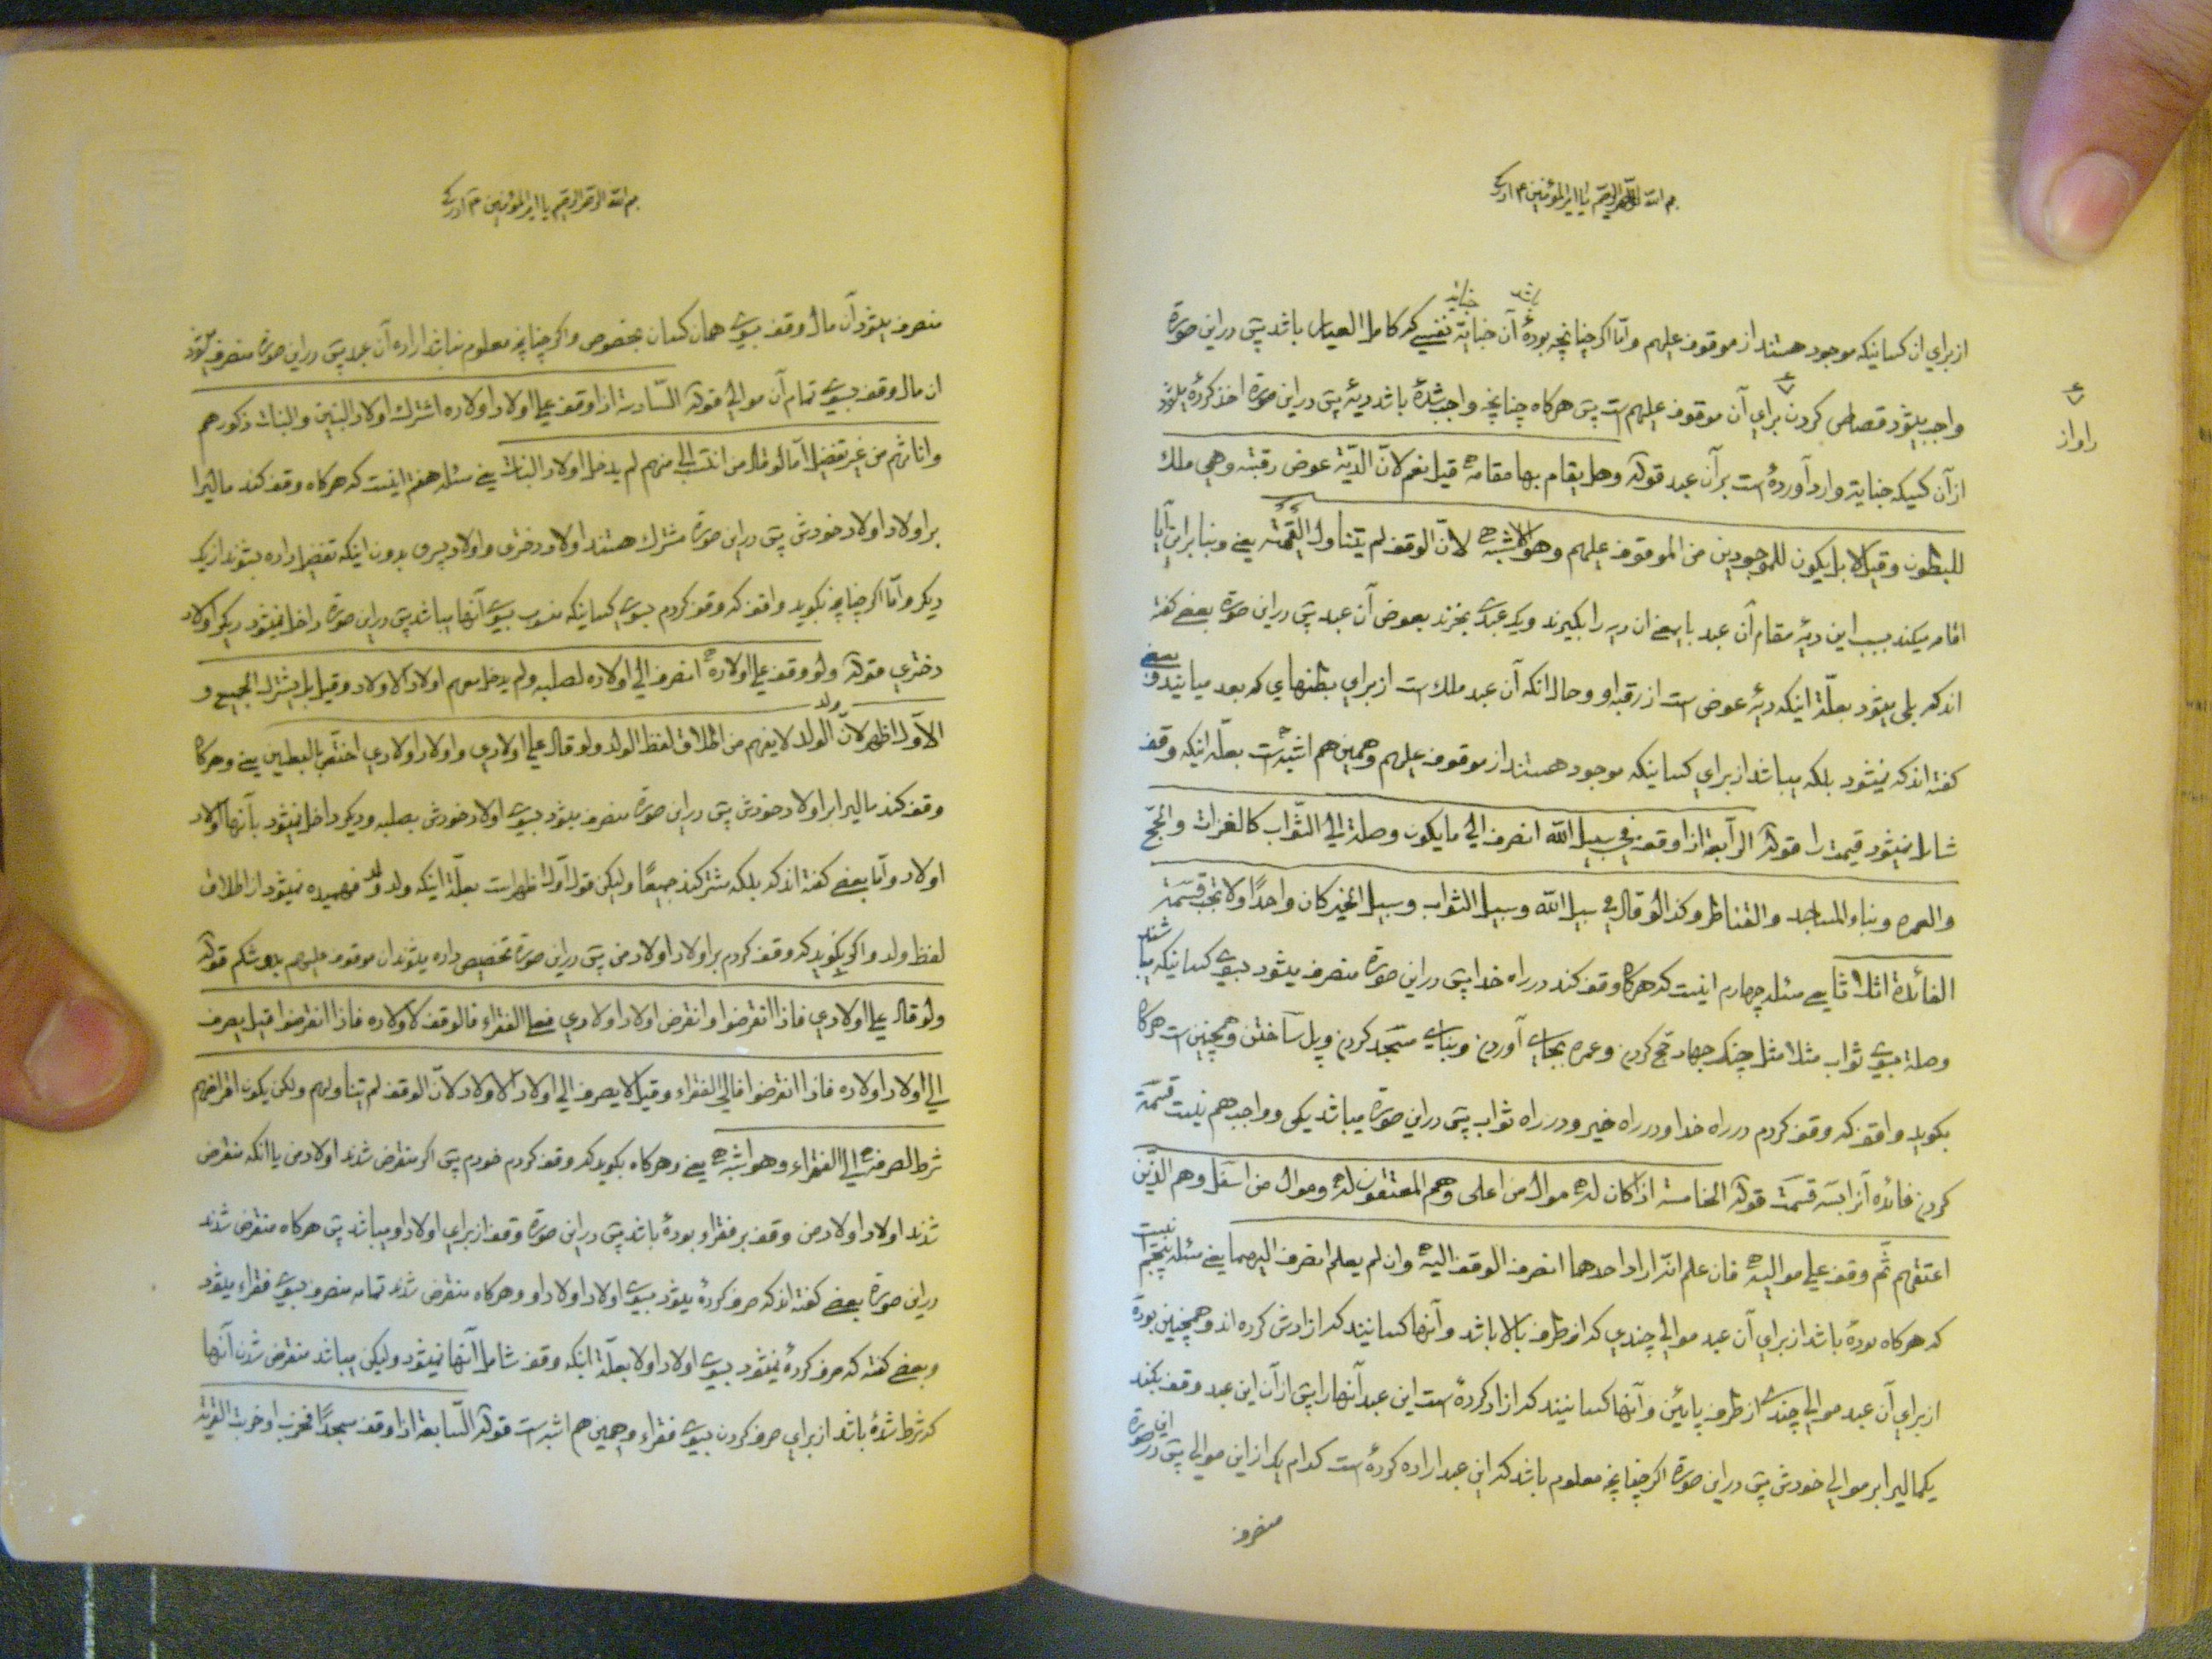 بسم الله الرحمن الرحیم یا امیر المؤمنین ادرکنی
باشد جنایة
از برای ان کسانیکه موجود هستند از موقوف علیهم وامّا اکر چنانچه بودهٔ آن جنایة نفسی که کامل العیار باشد پس در این صورة
واجب میشود قصاص کردن برای آن موقوف علیهم است پس هرکاه چنانچه واجب شدهٔ باشد دیهٔ پس در این صورة اخذ کردهٔ میشود
را از
از آن کسیکه جنایة وارد آوردهٔ است بر آن عبد قوله وهل یقام بها مقامه قیل نعم لانّ الدّیة عوض رقبته وهی ملک
للبطون وقیل لا بل یکون للموجودین من الموقوف علیهم وهو الاشبه لانّ الوقف لم یتناول القیمة یعنی وبنا براین آیا
اقامه میکند بسبب این دیهٔ مقام آن عبد یا یعنی ان دیه را بکیرند ویک عبدی بخرند بعوض آن عبد پس در این صورة بعضی کفته
اند که بلی میشود بعلّة اینکه دیهٔ عوض است از رقبه او وحال انکه آن عبد ملک است از برای بطنهای که بعد میایند و بعضی
کفته اند که نمیشود بلکه میباشد از برای کسانیکه موجود هستند از موقوف علیهم وهمین هم اشبه است بعلّة اینکه وقف
شامل نمیشود قیمة را قوله الرّابعة اذا وقف فی سبیل الله انصرف الی ما یکون وصلة الی الثّواب کالغزات والحجّ
والعمره وبناء المساجد والقناطر وکذا لو قال فی سبیل الله وسبیل الثواب وسبیل الخیر کان واحدًا ولا تجب قسمة
الفائدة اثلاثا یعنی مسئله چهارم اینست که هرکاه وقف کند در راه خدا پس در این صورة منصرف میشود بسوی کسانیکه میباشند
وصلة بسوی ثواب مثلا مثل جنک جهاد حج کردن وعمره بجای آوردن وبنای مسجد کردن وپل ساختن وهمچنین است هرکاه
بکوید واقف که وقف کردم در راه خدا ودر راه خیر ودر راه ثواب پس در این صورة میباشد یکی وواجب هم نیست قسمة
کردن فائده آنرا بسه قسمت قوله الخامسة اذا کان له موال من اعلی وهم المعتقون له وموال من اسفل وهم الذّین
اعتقهم ثمّ وقف علی موالیه فان علم انّه اراد احدهما انصرف الوقف الیه وان لم یعلم انصرف الیهما یعنی مسئله پنجم اینست
که هرکاه بودهٔ باشد از برای آن عبد موالی چندی که از طرف بالا باشد وآنها کسانیند که ازادش کرده اند وهمچنین بودهٔ
از برای آن عبد موالی چندی از طرف پائین وآنها کسانیند که ازاد کردهٔ است این عبد آنها را پس از آن این عبد وقف بکند
یکمالیرا بر موالی خودش پس در این صورة اکر چنانچه معلوم باشد که این عبد اراده کردهٔ است کدام یک از این موالی پس در این صورة
منصرف
بسم الله الرحمن الرحیم یا امیر المؤمنین ادرکنی
منصرف میشود آن مال وقف بسوی همان کسان بخصوص واکر چنانچه معلوم نباشد اراده آن عبد پس در این صورة منصرف میشود
ان مال وقف بسوی تمام آن موالی قوله السّادسة اذا وقف علی اولاد اولاده اشترک اولاد البنین والبنات ذکورهم
واناثهم من غیر تفضیل امّا لو قال من انتسب الی منهم لم یدخل اولاد البنات یعنی مسئله هفتم اینست که هرکاه وقف کند مالیرا
بر اولاد اولاد خودش پس در این صورة مشترک هستند اولاد دختری واولاد پسری بدون اینکه تفضیل داده بشوند از یک
دیکر وامّا اکر چنانچه بکوید واقف که وقف کردم بسوی کسانیکه منسوب بسوی آنها میباشد پس در این صورة داخل نمیشود دیکر اولاد
دختری قوله ولو وقف علی اولاده انصرف الی اولاده لصلبه ولم یدخل معهم اولاد الاولاد وقیل بل یشترک الجمیع و
الاوّل اظهر لانّ ولد الولد لا یفهم من اطلاق لفظ الولد ولو قال علی اولادی واولاد اولادی اختصّ بالبطنین یعنی وهرکاه
وقف کند مالیرا بر اولاد خودش پس در این صورة منصرف میشود بسوی اولاد خودش بصلبه ودیکر داخل نمیشود بآنها اولاد
اولاد وامّا بعضی کفته اند که بلکه مشترکند جمیعًا ولیکن قول اوّل اظهر است بعلّة اینکه ولد ولد فهمیده نمیشود از اطلاق
لفظ ولد واکر بکوید که وقف کردم بر اولاد اولاد من پس در این صورة تخصیص داده میشوند ان موقوف علیهم بدو شکم قوله
ولو قال علی اولادی فاذا انقرضوا وانقرض اولاد اولادی فعلی الفقراء فالوقف لاولاده فاذا انقرضوا قیل یصرف
الی اولاد اولاده فاذا انقرضوا فالی الفقراء وقیل لا یصرف الی اولاد الاولاد لانّ الوقف لم یتناولهم ولکن یکون انقراضهم
شرط لصرفه الی الفقراء وهو اشبه یعنی وهرکاه بکوید که وقف کردم خودم پس اکر منقرض شدند اولاد من یا انکه منقرض
شدند اولاد اولاد من وقف بر فقراء بودهٔ باشد پس در این صورة وقف از برای اولاد او میباشد پس هرکاه منقرض شدند
در این صورة بعضی کفته اند که صرف کردهٔ میشود بسوی اولاد اولاد او وهرکاه منقرض شدند تمامه منصرف بسوی فقراء میشود
وبعضی کفته که صرف کردهٔ نمیشود بسوی اولاد اولاد بعلّة اینکه وقف شامل آنها نمیشود ولیکن میباشد منقرض شدن آنها
که شرط شدهٔ باشد از برای صرف کردن بسوی فقراء وهمین هم اشبه است قوله السّابعة اذا وقف مسجدًا فخرب او خربت القریة